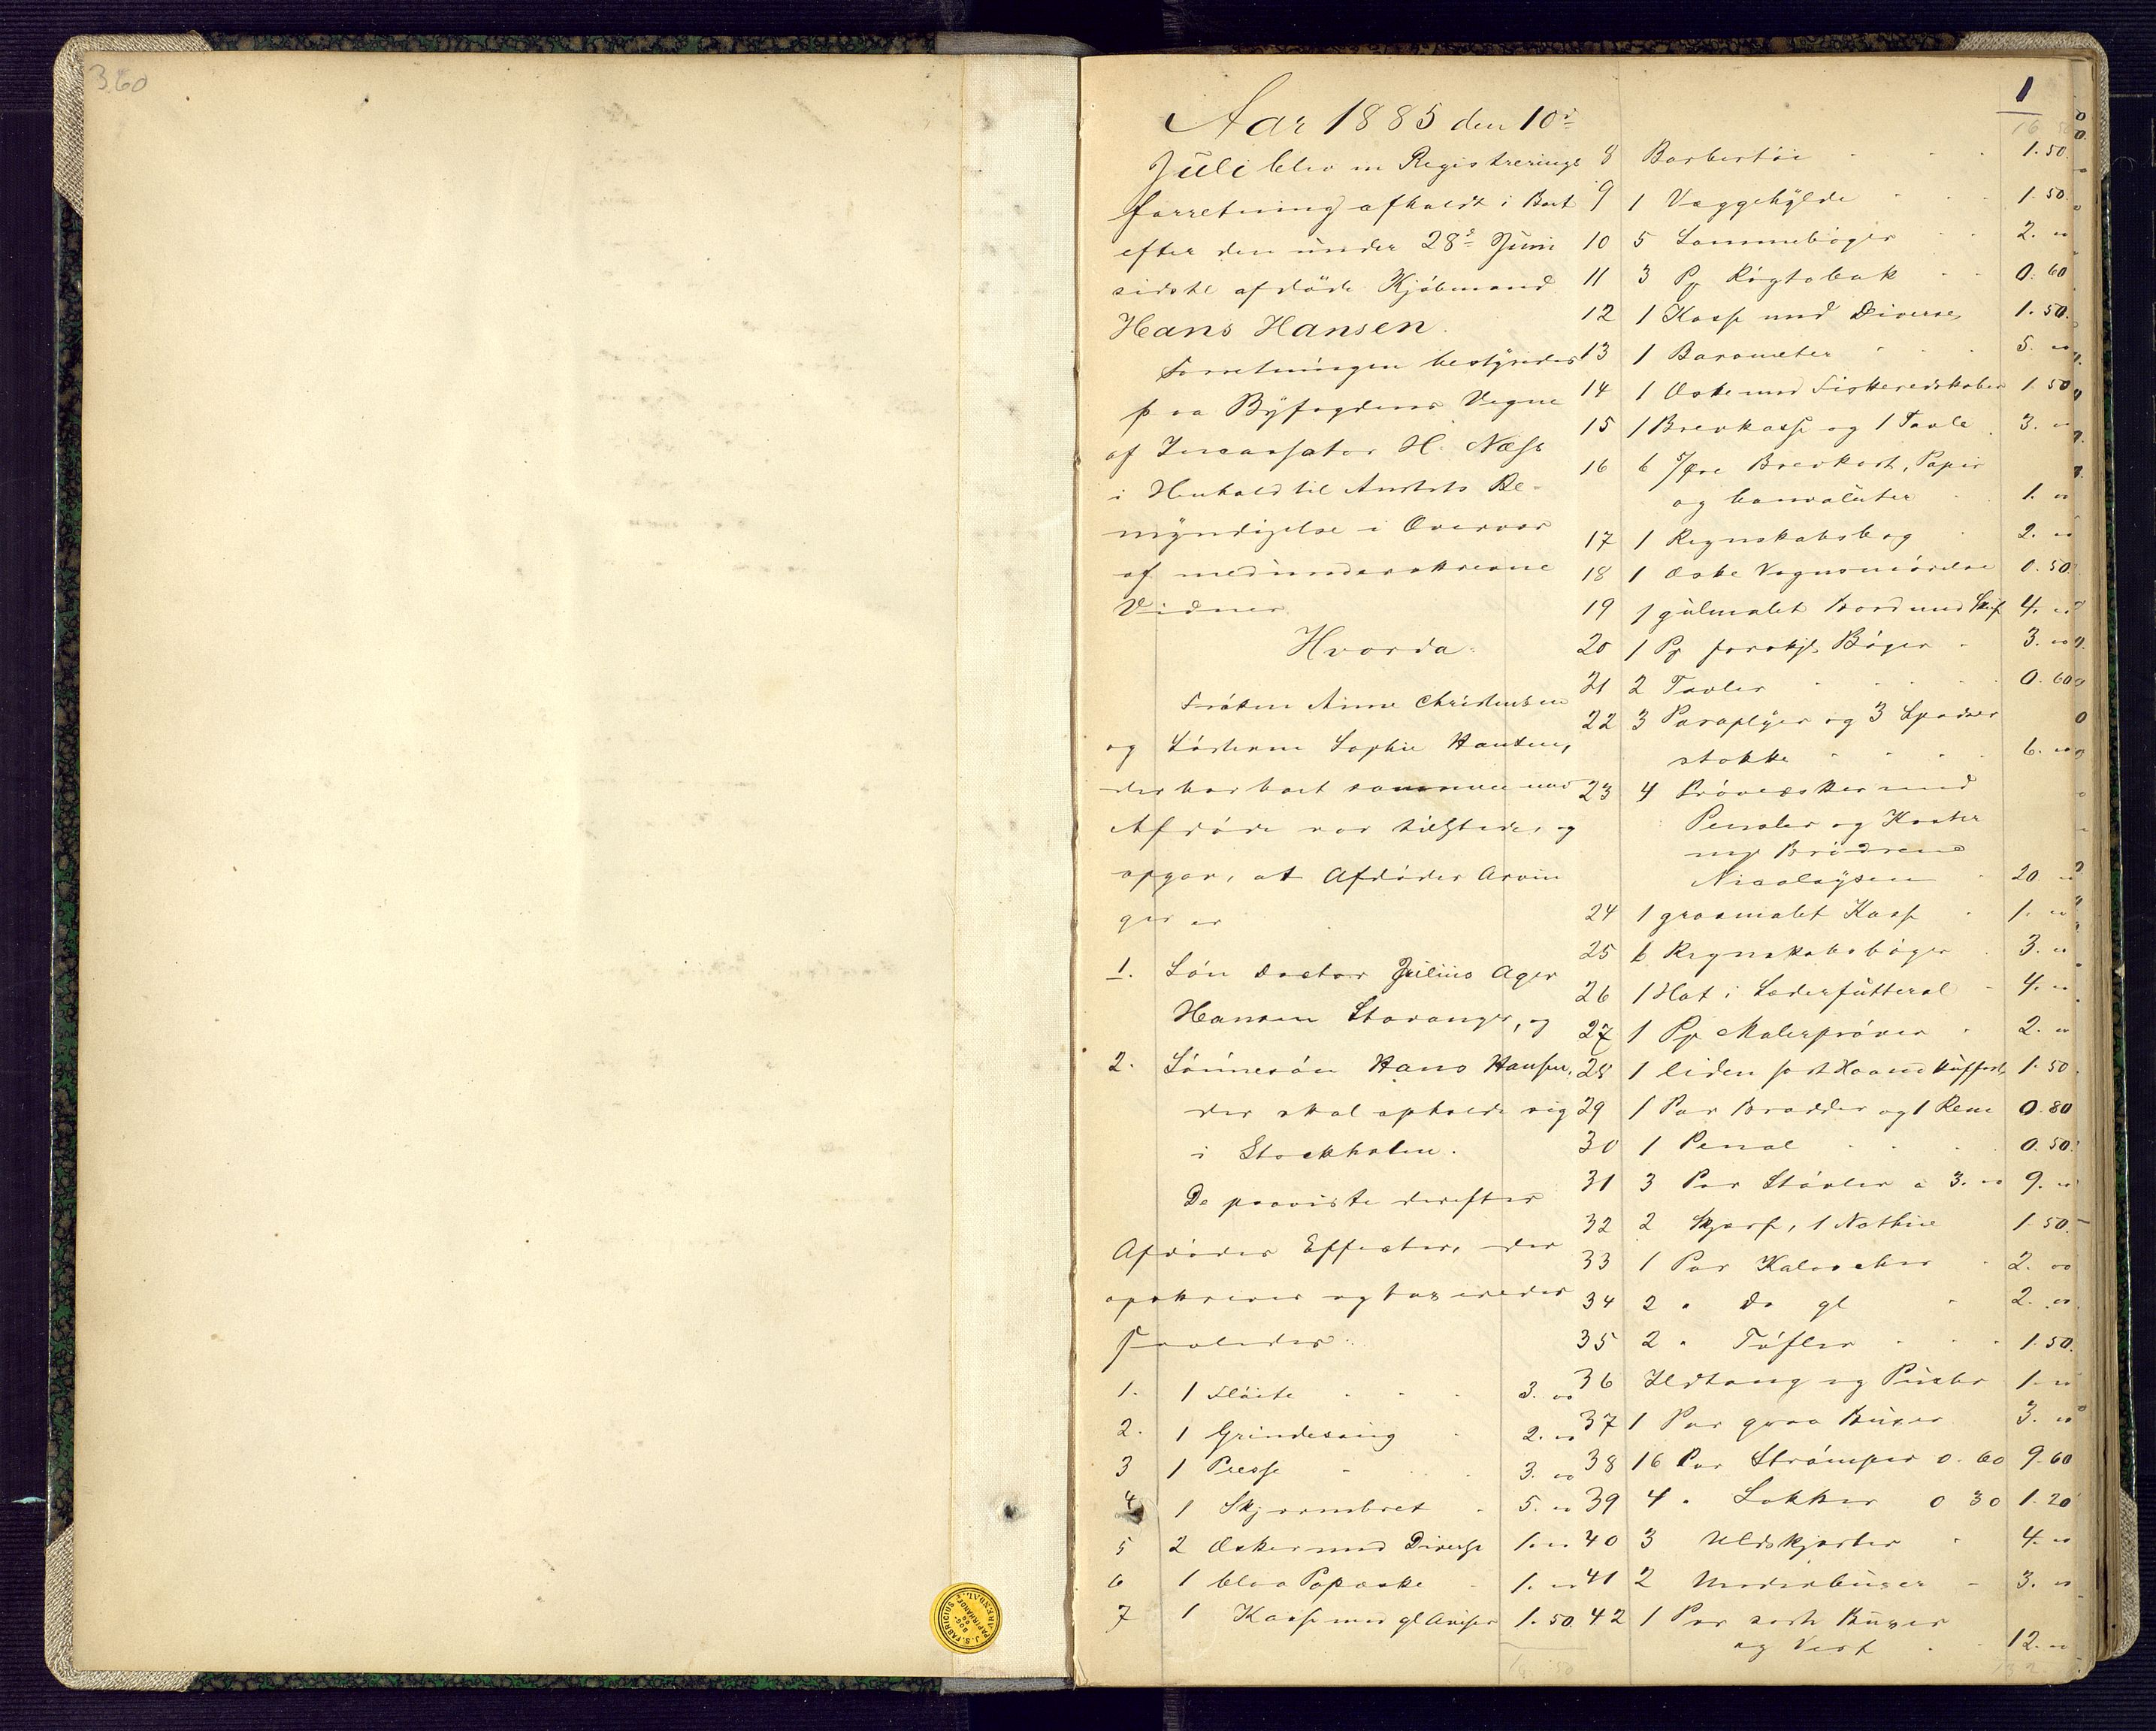 360
1
Aar 1885 den 10de
Juli blev en Registrerings
forretning afholdt i Boet
efter den under 28de Juni
sidstl afdøde Kjøbmand
Hans Hansen.
Forretningen bestyredes
paa Byfogdens Vegne
af H. Næss
i Henhold til Amtets Be-
myndigelse i Overvær
af medunderskrevne
Vidner
Hvorda:
Frøken Anne Christensen
og Søsteren Sophie Hansen,
der har boet sammen med
Afdøde var tilstede, og
opgav, at Afdødes Arvin
ger er
1. Søn Doctor Julius Ager
Hansen Stavanger, og
2. Sønnesøn Hans Hansen,
der skal opholde sig
i Stockholm.
De paaviste derefter
Afdødes Effecter, der
opskreves og taxeredes
saaledes:
1. 1 Fløite 3. 00
2. 1 Grindesaug 2. 00
3 1 Presse 3. 00
4 1 Skjærmbret 5. 00
5 2 Æsker med Diverse 1. 00
6 1 blaa Papæske 1. 00
7 1 Kasse med gl Aviser 1. 50
16 50
16 50
8 Barbertøi 1. 50.
9 1 Væggehylde 1. 50.
10 5 Lommebøger 2. 00
11 3 Pp Røgtobak 0. 60
12 1 Kasse med Diverse 1. 50.
13 1 Barometer 5. 00
14 1 Æske med Fiskeredskaber 1. 50
15 1 Brevkasse og 1 Tavle 3. 00
16 6 5/øre Brevkort, Papir
og Convoluter 1. 00
17 1 Regnskabsbog 2. 00
18 1 Æske Vognsmørelse 0. 50.
19 1 gulmalet Bord med Skuf 4. 00
20 1 Pp forskjl. Bøger 3. 00
21 2 Tavler 0. 60
22 3 Paraplyer og 3 Spadser
stokke 6. 00
23 4 Prøveæsker med
Pensler og Koster
Brødrene
Nicolaysen 20. 00
24 1 graamalet Kasse 1. 00
25 6 Regnskabsbøger 3. 00
26 1 Hat i Læderfutteral 4. 00
27 1 Pp Malerprøver 2. 00
28 1 liden sort Haandkuffert 1. 50
29 1 Par Brodder og 1 Rem 0. 80
30 1 Penal 0. 50.
31 3 Par Støvler a 3. 00 9. 00
32 2 Skjærf, 1 Nathue 1. 50.
33 1 Par Kaloscher 2. 00
34 2 " do gl 2. 00
35 2 " Tøfler 1. 50.
36 Ildtang og Puster 1. 00
37 1 Par graa Buxer 3. 00
38 16 Par Strømper 0. 60 9. 60
39 4 " Sokker 0 30 1. 20
40 3 Uldskjorter 4. 00
41 2 Underbuxer 3. 00
42 1 Par sorte Buxer
og Vest 12. 00
J. S. FABRICIUS
BOG- OG
PAPIRHANDEL
ARENDAL